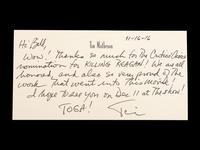 11-16-16
Tim Matheson
Hi Bill,
Wow! Thanks so much for the Critics Choice
nomination for KILLING REAGAN! We are all
honored, and also so very proud of the
work that went into this movie!
I hope to see you on Dec 11 at the show!
TOGA! Tim